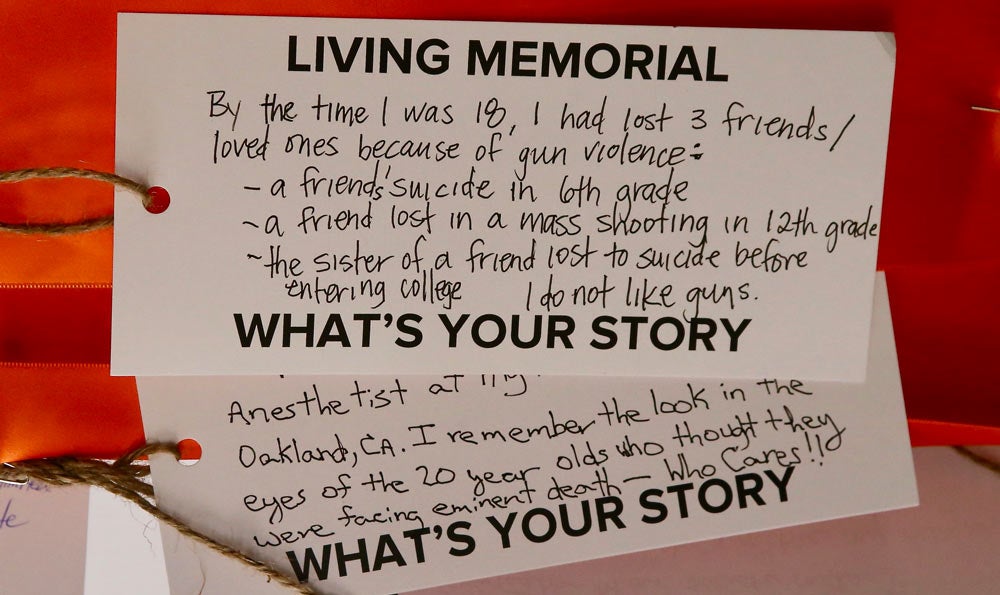 LIVING MEMORIAL
By the time I was 18, I had lost 3 friends/
loved ones because of gun violence:
- a friends' suicide in 6th grade
- a friend lost in a mass shooting in 12th grade
- the sister of a friend lost to suicide before
entering college I do not like guns.
WHAT'S YOUR STORY
Anesthetist at
Oakland, CA. I remember the look in the
eyes of the 20 year olds who thought they
were facing eminent death — Who Cares!!
WHAT'S YOUR STORY